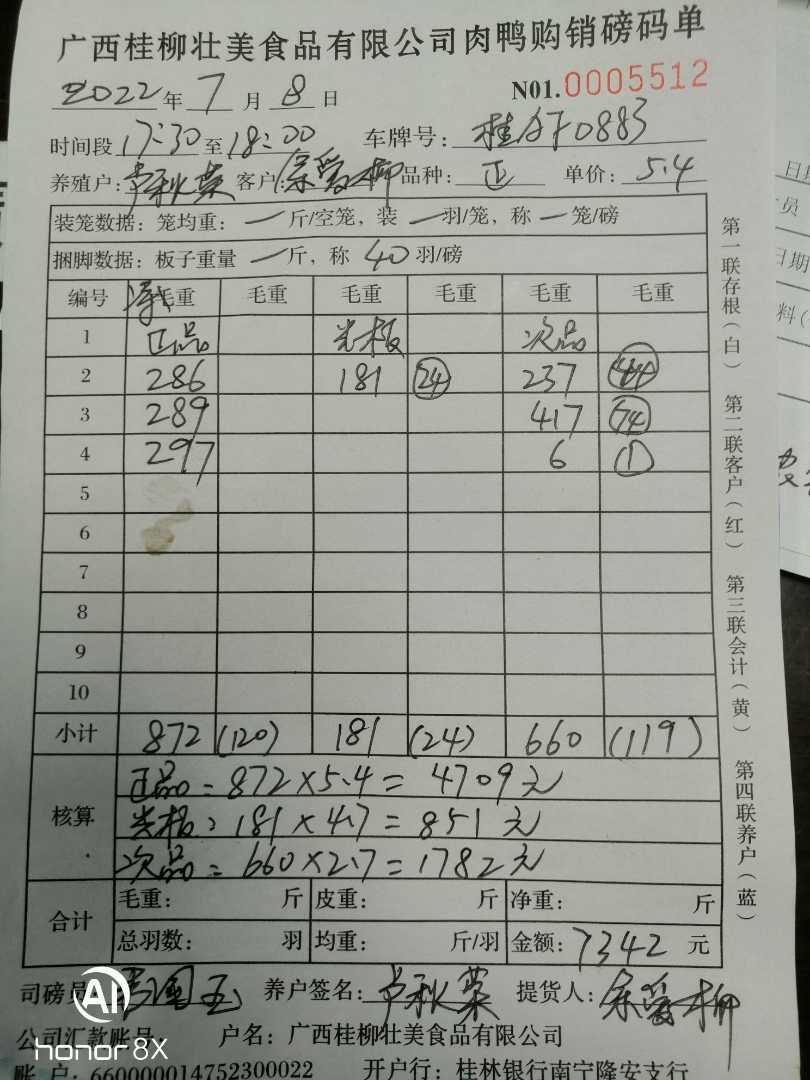 广西桂柳壮美食品有限公司肉鸭购销磅码单
2022年 7 月 8 日 N01.0005512
时间段 17:30 至 18:00 车牌号: 桂 0883
养殖户: 卢秋菜 客户: 余爱柳 品种: 正 单价: 5.4
装笼数据: 笼均重: 一 斤/空笼, 装 一 羽/笼, 称 一 笼/磅
捆脚数据: 板子重量 一 斤, 称 40 羽/磅
编号 净毛重 毛重 毛重 毛重 毛重 毛重
1 正品 光板 次品
2 286 181 (24) 237 (44)
3 289 417 (74)
4 297 6 (1)
5
6
7
8
9
10
小计 872 (120) 181 (24) 660 (119)
核算
正品=872×5.4=4709元
光板:181×4.7=851元
次品=660×2.7=1782元
合计
毛重: 斤 皮重: 斤 净重: 斤
总羽数: 羽 均重: 斤/羽 金额: 7342 元
司磅员 国玉 养户签名: 卢秋菜 提货人: 余爱柳
公司汇款账号 户名: 广西桂柳壮美食品有限公司
账户: 660000014752300022 开户行: 桂林银行南宁隆安支行
第一联存根(白) 第二联客户(红) 第三联会计(黄) 第四联养户(蓝)
日期
员
日期
料(
AI
honor 8X